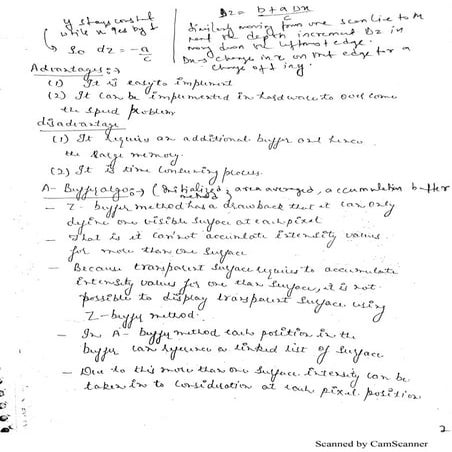 y stays constant
while x ↑ed by 1
So dz = -a/c
Dz = b + a Dx / c
Similarly moving from one scan line to the
next the depth increment Dz in
moving down the leftmost edge.
Dx → change in x on edge for a
change of 1 in y
Advantages :→
(1) It is easy to implement
(2) It can be implemented in hardware to overcome
the speed problem
disadvantage
(1) It requires an additional buffer and hence
the large memory.
(2) It is time consuming process.
A-Buffer algo :→ (Antialiased, area averaged, accumulation buffer
method)
– Z-buffer method has a drawback that it can only
define one visible surface at each pixel
– That is it cannot accumulate intensity values
for more than one surface
– Because transparent surface requires to accumulate
intensity values for one than surface, it is not
possible to display transparent surface using
Z-buffer method.
– In A-buffer method each position in the
buffer can reference a linked list of surface
– Due to this more than one surface intensity can be
taken in to consideration at each pixel position
2
Scanned by CamScanner